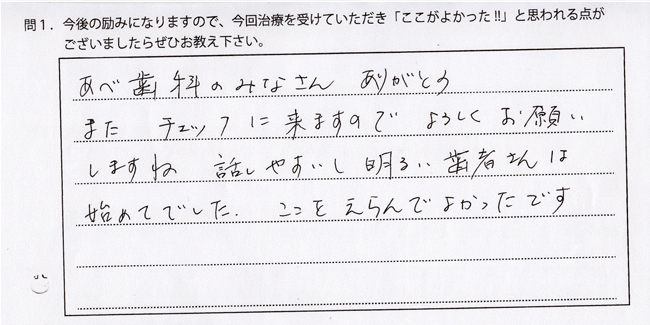 問1. 今後の励みになりますので、今回治療を受けていただき「ここがよかった!!」と思われる点が
ございましたらぜひお教え下さい。
あべ歯科のみなさん ありがとう
また チェックに来ますので よろしくお願い
しますね 話しやすいし明るい歯者さんは
始めてでした. ここをえらんでよかったです